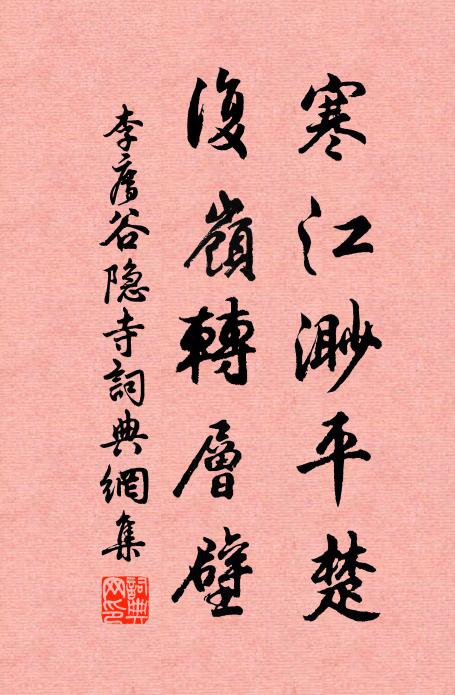 寒江渺平楚
復嶺轉層壁
李廌谷隐寺詞典網集
詞典网印